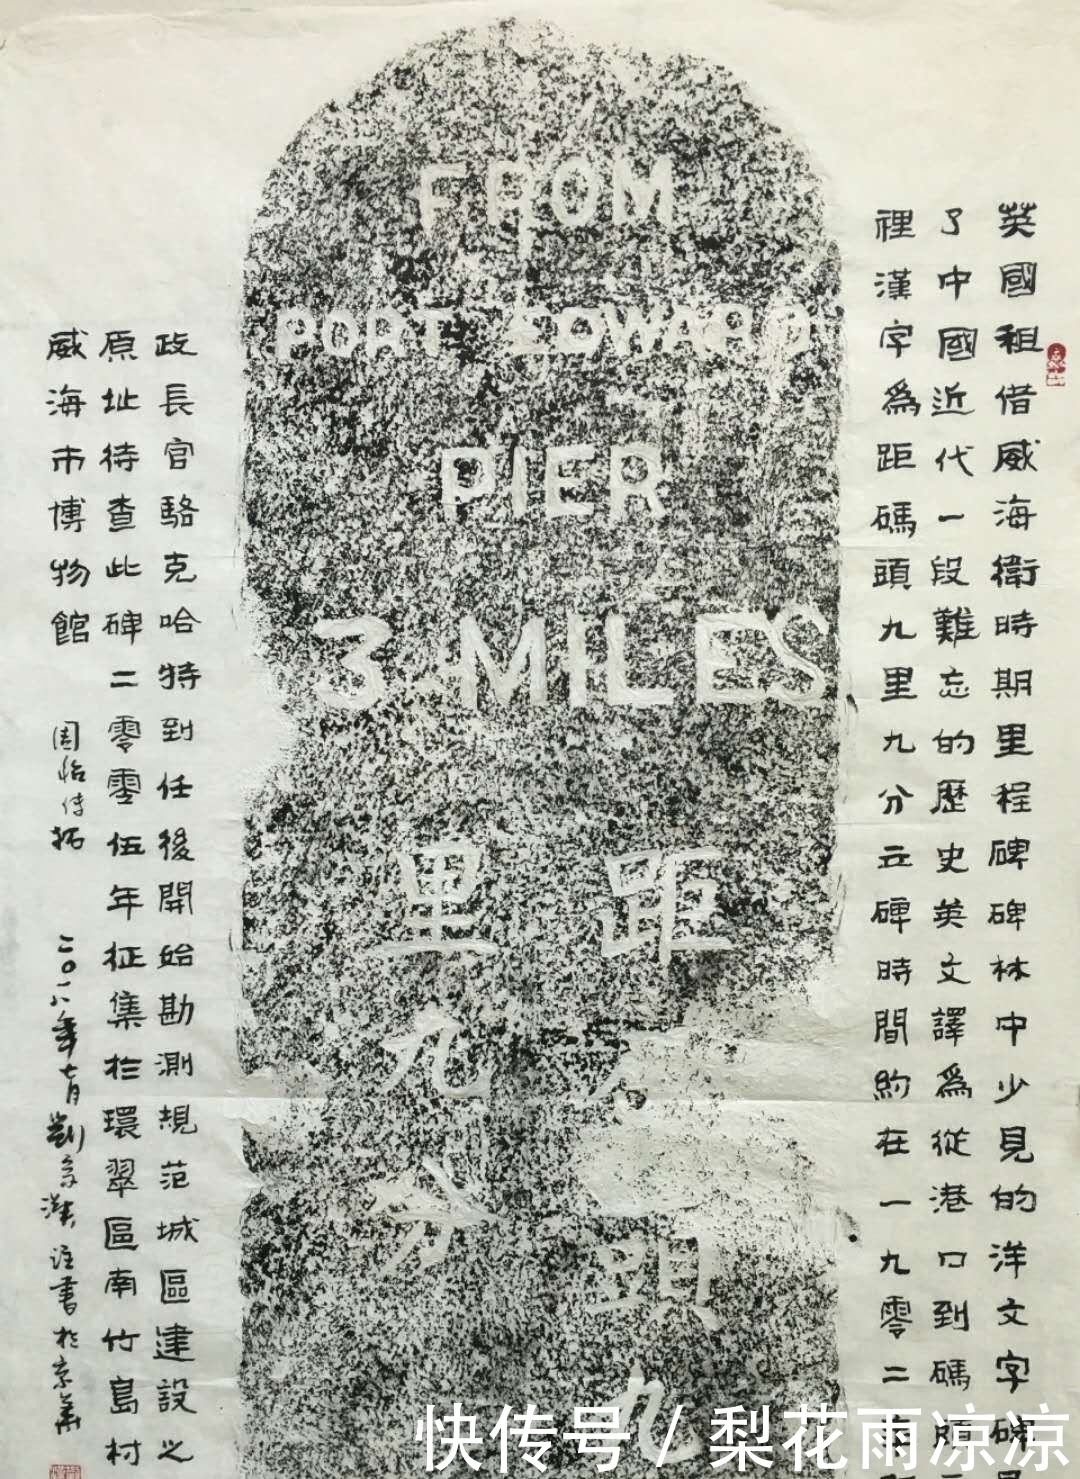 FROM
PORT EDWARD
PIER
3 MILES
距
頭九
里九分
英國租借威海衛時期里程碑碑林中少見的洋文字碑
了中國近代一段難忘的歷史英文譯為從港口到碼頭
裡漢字為距碼頭九里九分立碑時間約在一九零二
政長官駱克哈特到任後開始勘測規范城區建設之
原址待查此碑二零零伍年征集於環翠區南竹島村
威海市博物館
二〇一八年七月劉
註書於京華
快传号 / 梨花雨凉凉